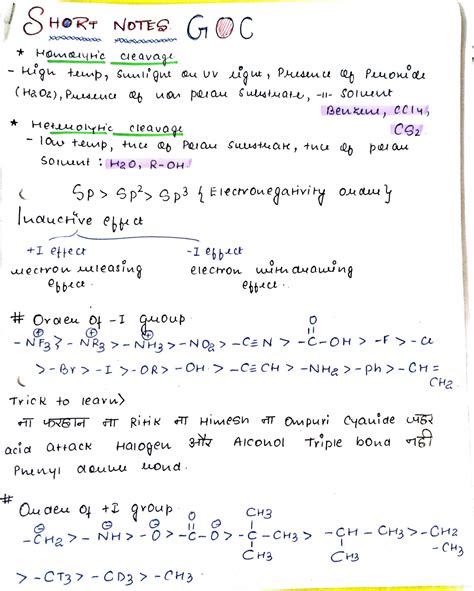 SHORT NOTES GOC
* Homolytic cleavage
- High temp, Sunlight or UV light, Presence of Peroxide
(H2O2), Presence of non polar Substrate, -11- Solvent
Benzene, CCl4,
CS2
* Heterolytic cleavage
- low temp, of Polar Substrate, of polar
Solvent : H2O, R-OH
Sp > Sp2 > Sp3 { Electronegativity order }
Inductive effect
+I effect -I effect
electron releasing electron withdrawing
effect. effect.
# Order of -I group
O
- NF3⊕ > - NR3⊕ > - NH3⊕ > - NO2 > - C≡N > - C - OH > - F > - Cl
> - Br > - I > - OR > - OH > - C≡CH > - NH2 > - Ph > - CH =
CH2
Trick to learn>
ना फरहान ना Ritik ना Himesh ना Ompuri Cyanide जहर
acid attack Halogen और Alcohol Triple bond नही
Phenyl double bond.
# Order of +I group
O CH3
- CH2⊖ > - NH⊖ > - O⊖ > - C - O⊖ > - C - CH3 > - CH - CH3 > - CH2
CH3 CH3 - CH3
> - CT3 > - CD3 > - CH3